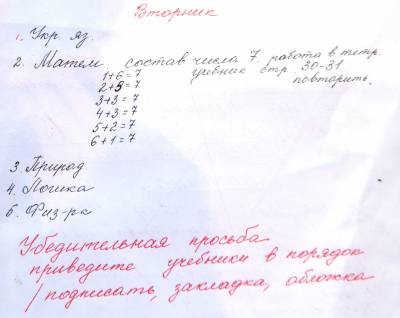 Вторник
1. Укр. яз.
2. Матем. состав числа 7. работа в тетр.
1+6=7 учебник стр. 30-31
2+5=7 повторить.
3+3=7
4+3=7
5+2=7
6+1=7
3. Природ.
4. Логика
5. Физ-ра
Убедительная просьба
приведите учебники в порядок
/подписать, закладка, обложка